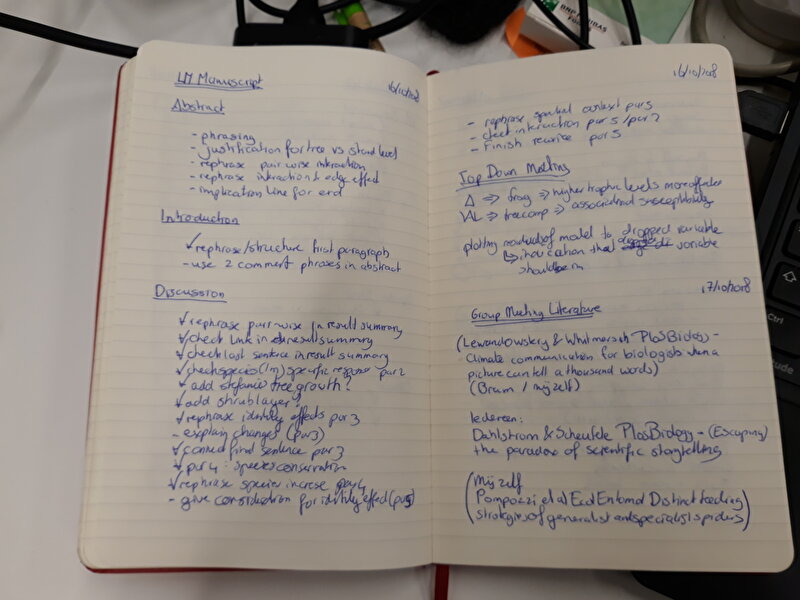 LM Manuscript
16/10/2018
Abstract
- phrasing
- justification for tree vs stand level
- rephrase pair-wise interaction
- rephrase interaction & edge effect
- implication line for end
Introduction
- rephrase/structure first paragraph
- use 2 comment phrases in abstract
Discussion
- rephrase pair-wise in result summary
- check link in result summary
- check last sentence in result summary
- check species (lm) specific response par 2
- add stefanie tree growth?
- add shrublayer?
- rephrase identity effects par 3
- explain changes (par 3)
- final sentence par 3
- par 4: species conservation
- rephrase species increase par 4
- give consideration for identity effect (par 5)
16/10/2018
- rephrase spatial context par 5
- check interaction par 5 / par 2
- Finish rewrite par 5
Top Down Meeting
Δ => frag => higher trophic levels more affected
=> treecomp => associational susceptibility
plotting residuals of model to dropped variable
↳ indication that variable
should be in
17/10/2018
Group Meeting Literature
(Lewandowsky & Whitmarsh PlosBiology -
Climate communication for biologists when a
picture can tell a thousand words)
(Bram / mijzelf)
Iedereen:
Dahlstrom & Scheufele PlosBiology - (Escaping)
the paradox of scientific storytelling
(Mijzelf
Pompozzi et al Ecol Entomol Distinct feeding
strategies of generalist and specialist spiders)
BNP PARIBAS
FORTIS
Shift
Ctrl